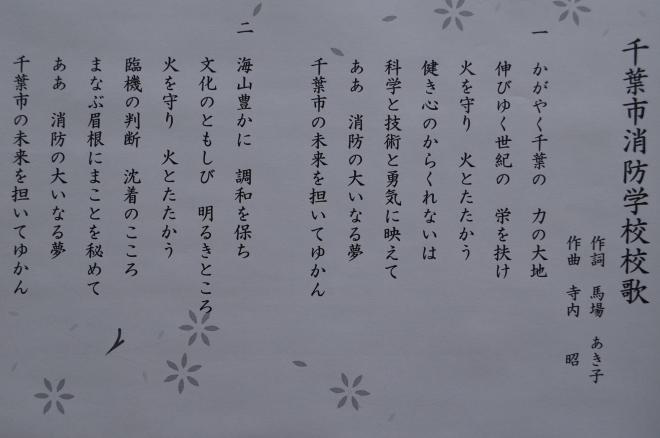 千葉市消防学校校歌
作詞 馬場 あき子
作曲 寺内 昭
一 かがやく千葉の 力の大地
伸びゆく世紀の 栄を扶け
火を守り 火とたたかう
健き心のからくれないは
科学と技術と勇気に映えて
ああ 消防の大いなる夢
千葉市の未来を担いてゆかん
二 海山豊かに 調和を保ち
文化のともしび 明るきところ
火を守り 火とたたかう
臨機の判断 沈着のこころ
まなぶ眉根にまことを秘めて
ああ 消防の大いなる夢
千葉市の未来を担いてゆかん